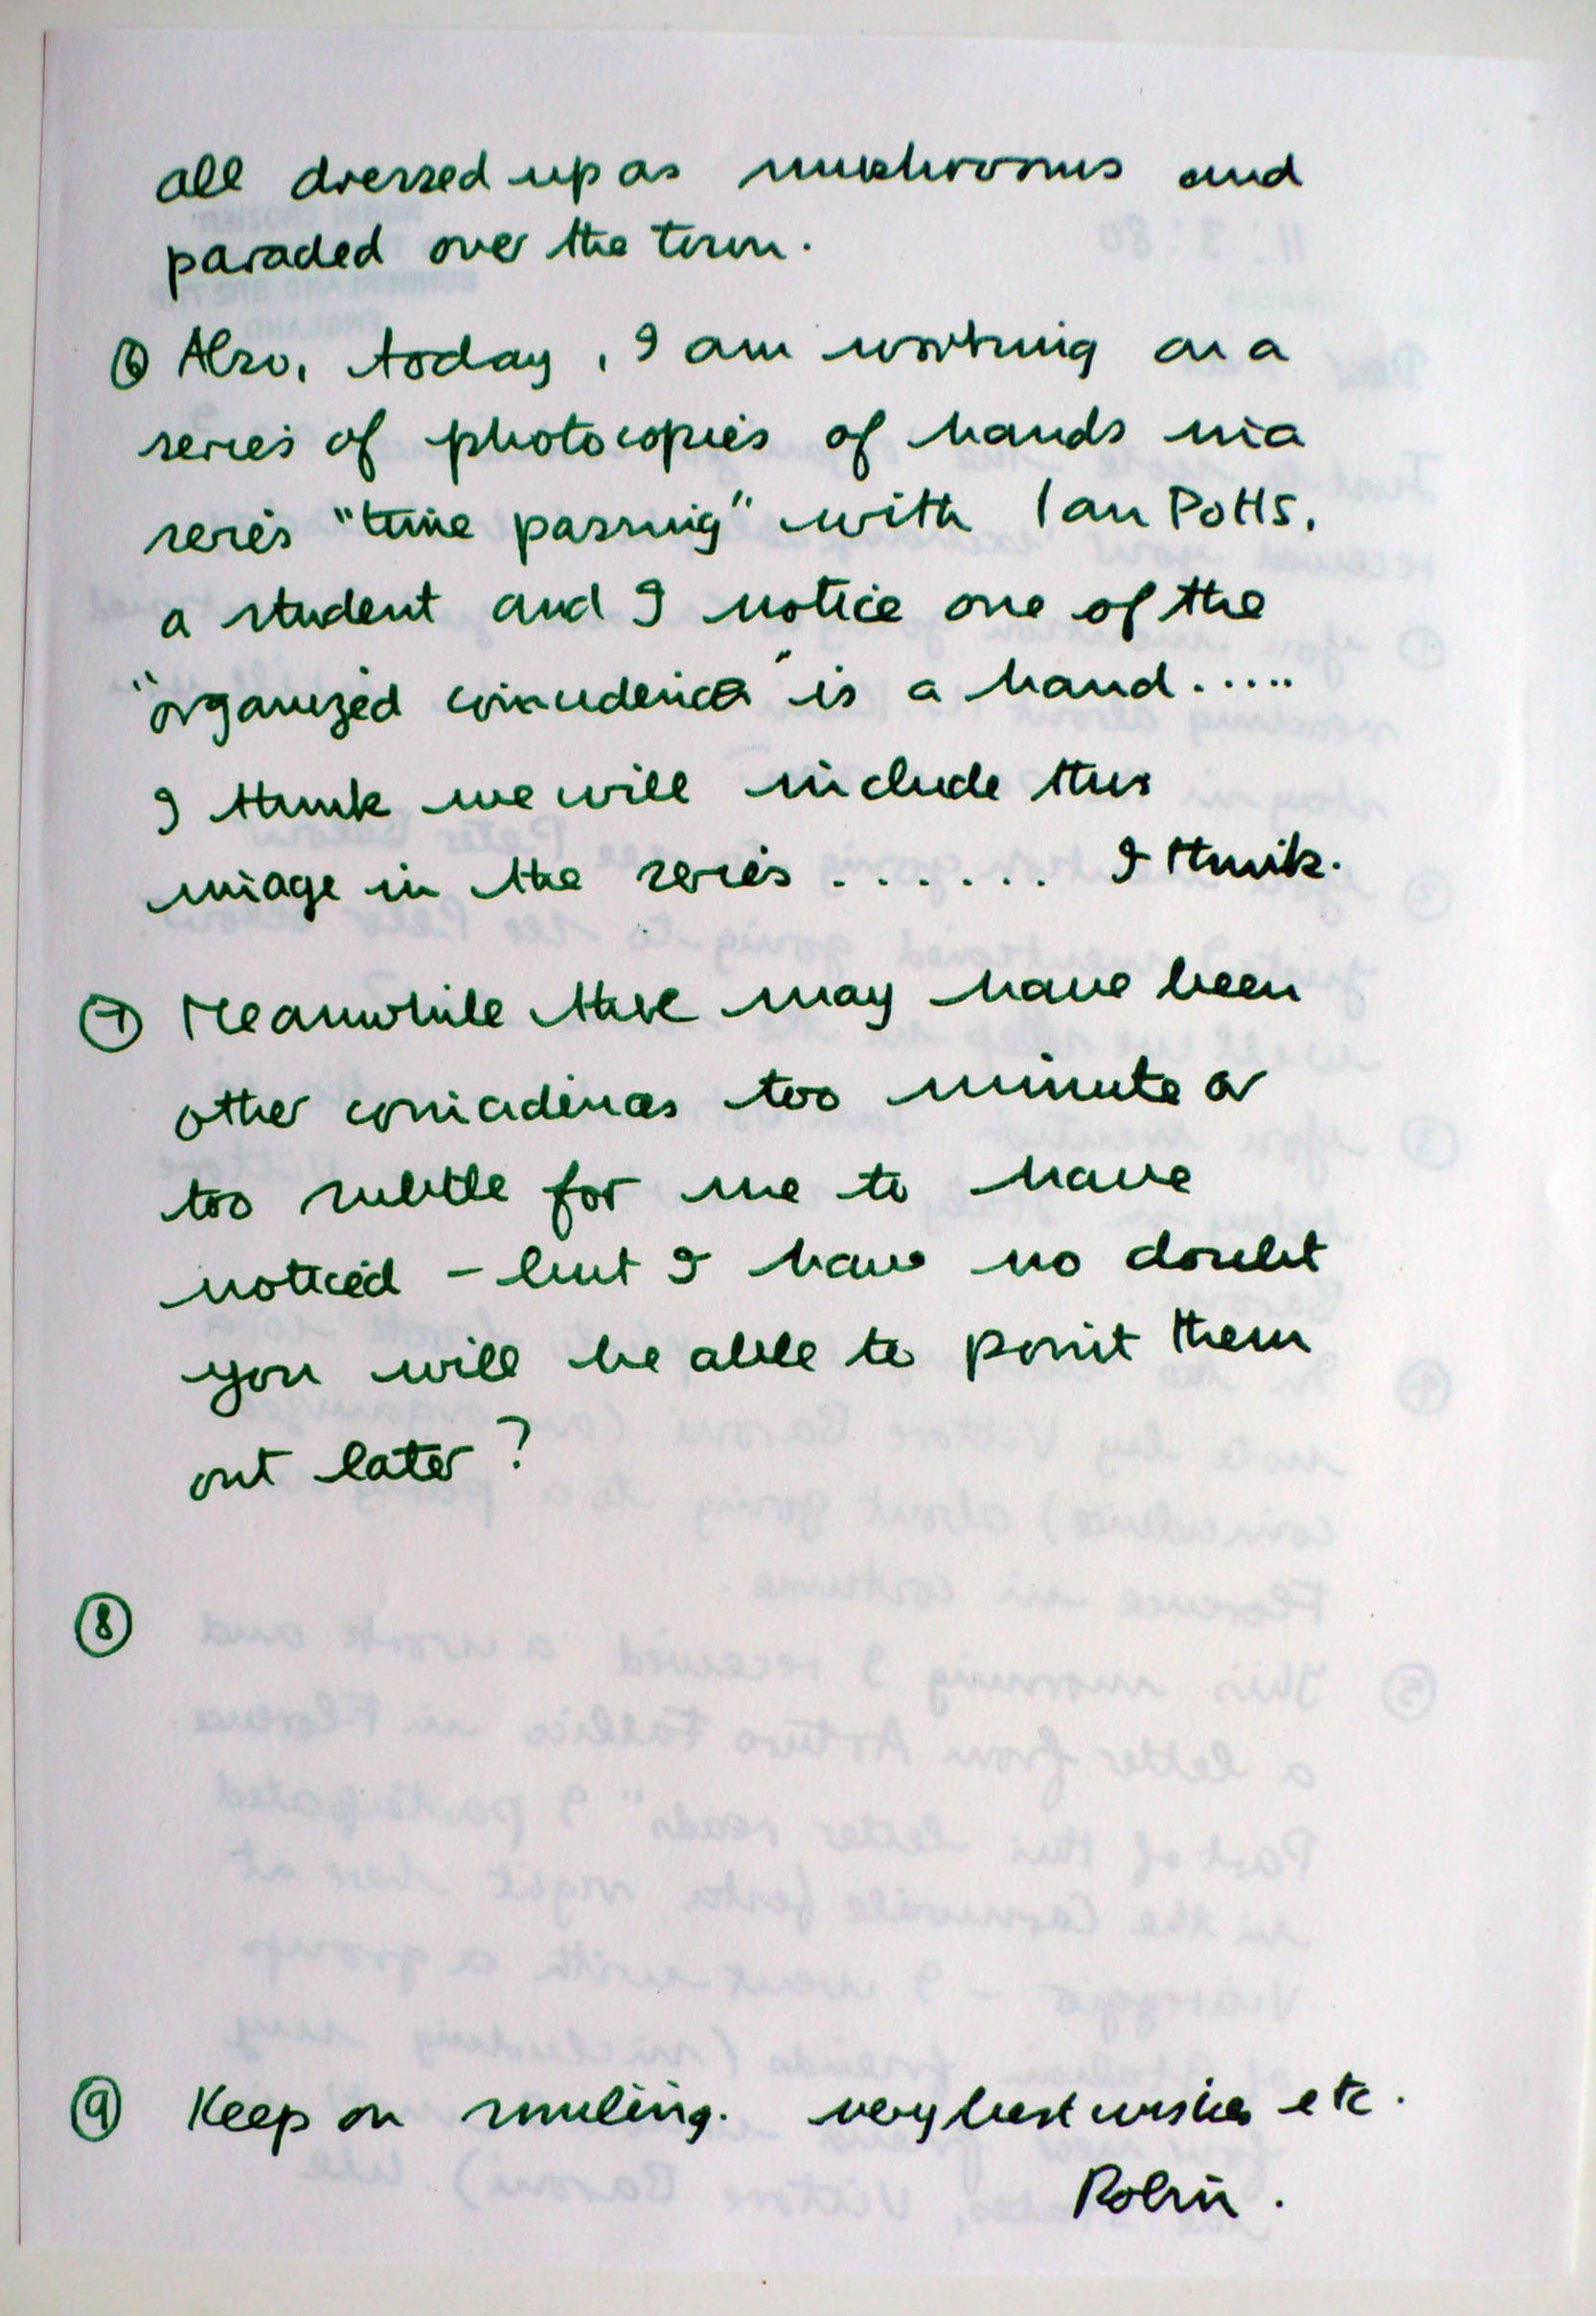 all dressed up as mushrooms and
paraded over the town.
⑥ Also, today, I am working on a
series of photocopies of hands in a
series "time passing" with Ian Potts,
a student and I notice one of the
"organized coincidence" is a hand.....
I think we will include this
image in the series ....... I think.
⑦ Meanwhile there may have been
other coincidences too minute or
too subtle for me to have
noticed – but I have no doubt
you will be able to point them
out later?
⑧
⑨ Keep on smiling. very best wishes etc.
Robin.